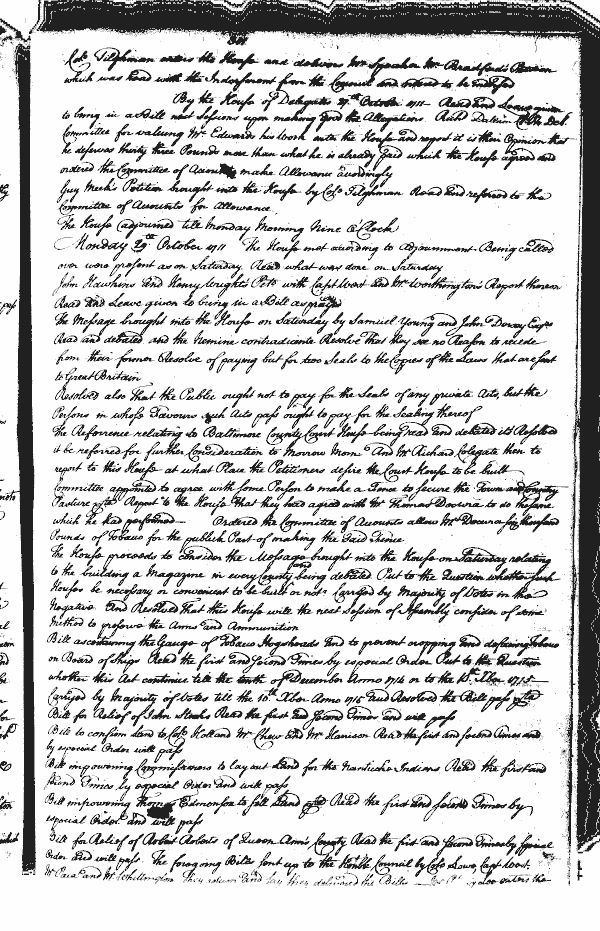 Colo Tilghman enters the House and delivers Mr Speaker Mr Bradford's Petition
which was read with the Indorsement from the Council and ordered to be Indorsed
By the House of Delegates 27th October 1711 Read and Leave given
to bring in a Bill next Sessions upon making good the Allegations.
Committee for valuing Mr Edwards his Work enter the House and report it is their Opinion that
he deserves thirty three Pounds more than what he is already paid which the House agreed and
ordered the Committee of Accounts make Allowance accordingly
Guy Meek's Petition brought into the House by Colo Tilghman Read and referred to the
Committee of Accounts for Allowance
The House adjourned till Monday Morning Nine o'Clock
Monday 29th October 1711 The House met according to Adjournment. Being called
over were present as on Saturday. Read what was done on Saturday
John Hawkins and Henry Wright's Peto with Capt Word and Mr Worthington's Report thereon
Read and Leave given to bring in a Bill as prayed
The Message brought into the House on Saturday by Samuel Young and John Dorsey Esqrs
Read and debated and the Nemine contradicente Resolve that they see no Reason to recede
from their former Resolve of paying but for two Seals to the Copies of the Laws that are sent
to Great Britain
Resolved also That the Public ought not to pay for the Seals of any private Acts, but the
Persons in whose Favours such Acts pass ought to pay for the Sealing thereof
The Referrence relating to Baltimore County Court House being read and debated its Resolved
it be referred for further Consideration to Morrow Morn And Mr Richard Colegate then to
report to this House at what Place the Petitioners desire the Court House to be built
Committee appointed to agree with some Person to make a Fence to secure the Town and Country
Pasture Report to the House that they had agreed with Mr Thomas Docwra to do the same
which he had performed Ordered the Committee of Accounts allow Mr Docwra six thousand
Pounds of Tobacco for the publick Part of making the said Fence
The House proceeds to consider the Message brought into the House on Saturday relating
to the building a Magazine in every County and being debated Put to the Question whether such
Houses be necessary or convenient to be built or not Carryed by Majority of Votes in the
Negative and Resolved That this House will the next Session of Assembly consider of some
Method to preserve the Arms and Ammunition
Bill ascertaining the Gauge of Tobacco Hogsheads and to prevent cropping and defacing Tobacco
on Board of Ships Read the first and second Times by especial Order Put to the Question
whether this Act continue till the tenth of December Anno 1714 or to the 10th Xber 1715
Carryed by Majority of Votes till the 10th Xber Anno 1715 and Resolved the Bill pass
Bill for Relief of John Read the first and second Times and will pass
Bill to confirm Land to Colo Holland Mr Chew and Mr Harrison Read the first and second Times and
by especial Order will pass
Bill impowering Commissioners to lay out Land for the Nanticoke Indians Read the first and
second Times by especial Order and will pass
Bill impowering Thomas Edmonson to sell Land Read the first and second Times by
especial Order and will pass
Bill for Relief of Robert Roberts of Queen Ann's County Read the first and second Times by special
Order and will pass. The foregoing Bills sent up to the Honble Council by Colo Lowe, Capt Word,
Mr and Mr Whittington They return and say they delivered the Bills enters the